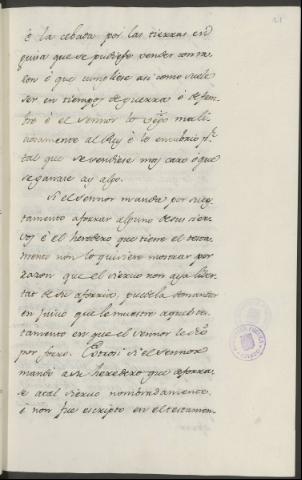 21
ò la cebada por las tierras en
guisa que se pudiese vender con ra-
zon ó que cumpliese asi como suele
ser en tiempos de guerra ò de fam-
bre ò el Sennor lo mali-
ciosamente al Rey ò lo encubrio
tal que se vendiese mas caro ò que
se ganase ay algo.
Si el Sennor mandase por su tes-
tamento aforrar alguno de sus sier-
vos è el heredero que tiene el testa-
mento non lo quisiere mostrar por
razon que el siervo non aya liber-
tad de su aforria, puedela demandar
en juicio que le muestre aquel tes-
tamento en que el Sennor le
por forro. Otrosi si el Sennor
mandó a su heredero que aforra-
se a tal siervo nombradamente,
è non fue escripto en el testamen-